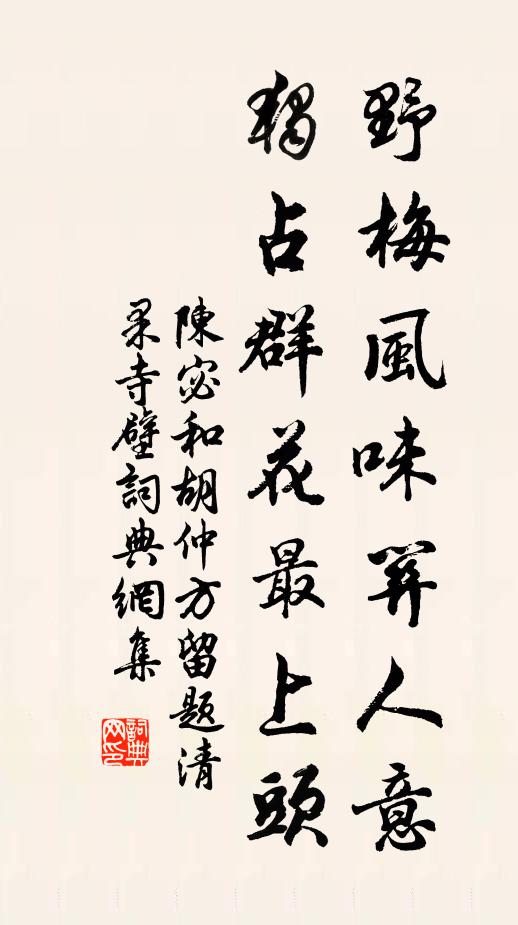 野梅風味人意
獨占群花最上頭
陳宓和胡仲方留題清
寺壁詞典網集
詞典網印